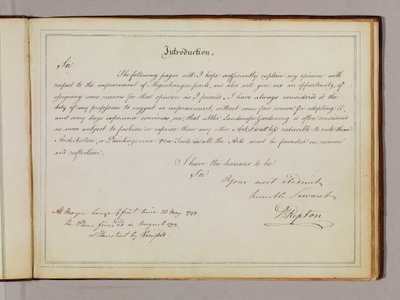 Introduction.
Sir
The following pages will I hope sufficiently explain my opinion with
respect to the improvement of park, as also will give me an opportunity, of
assigning some reasons for that opinion as I proceed. I have always considered it the
duty of my profession to suggest no improvement, without some fair reason for adopting it,
and every days experience convinces me, that altho' Landscape Gardening is often considered
as more subject to fashion or caprice than any other Art, it is not less reducible to rule than
Architecture, or Painting; and True Taste in all the Arts must be founded in reason
and reflection.
I have the honour to be
Sir
Your most obedient
humble Servant
H Repton
At first time 20 May 1792
the Plans finish'd in August 1792
at Hare Street by Romford